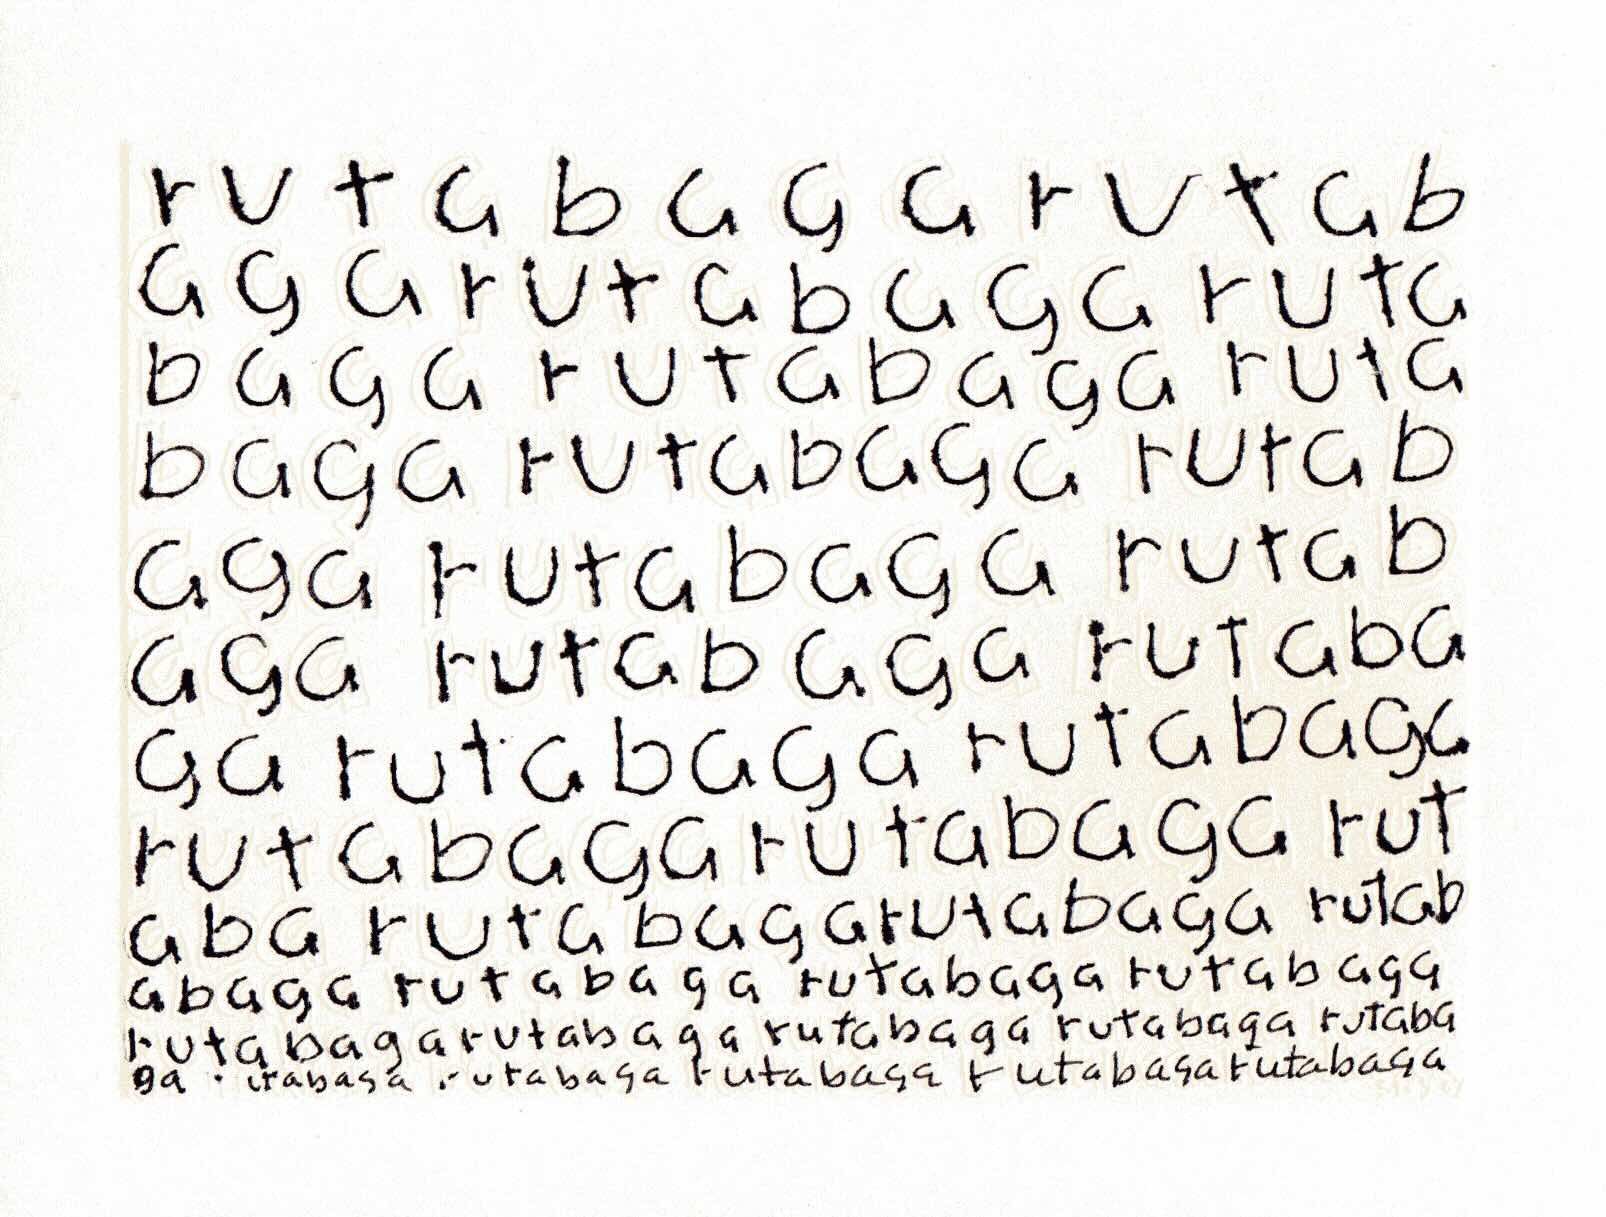 rutabaga rutab
aga rutabaga ruta
baga rutabaga ruta
baga rutabaga rutab
aga rutabaga rutab
aga rutabaga rutaba
ga rutabaga rutabaga
rutabaga rutabaga rut
aba rutabagarutabaga rutab
abaga rutabaga rutabaga rutabaga
rutabagarutabaga rutabaga rutabaga rutaba
ga rutabaga rutabaga rutabaga rutabagarutabaga